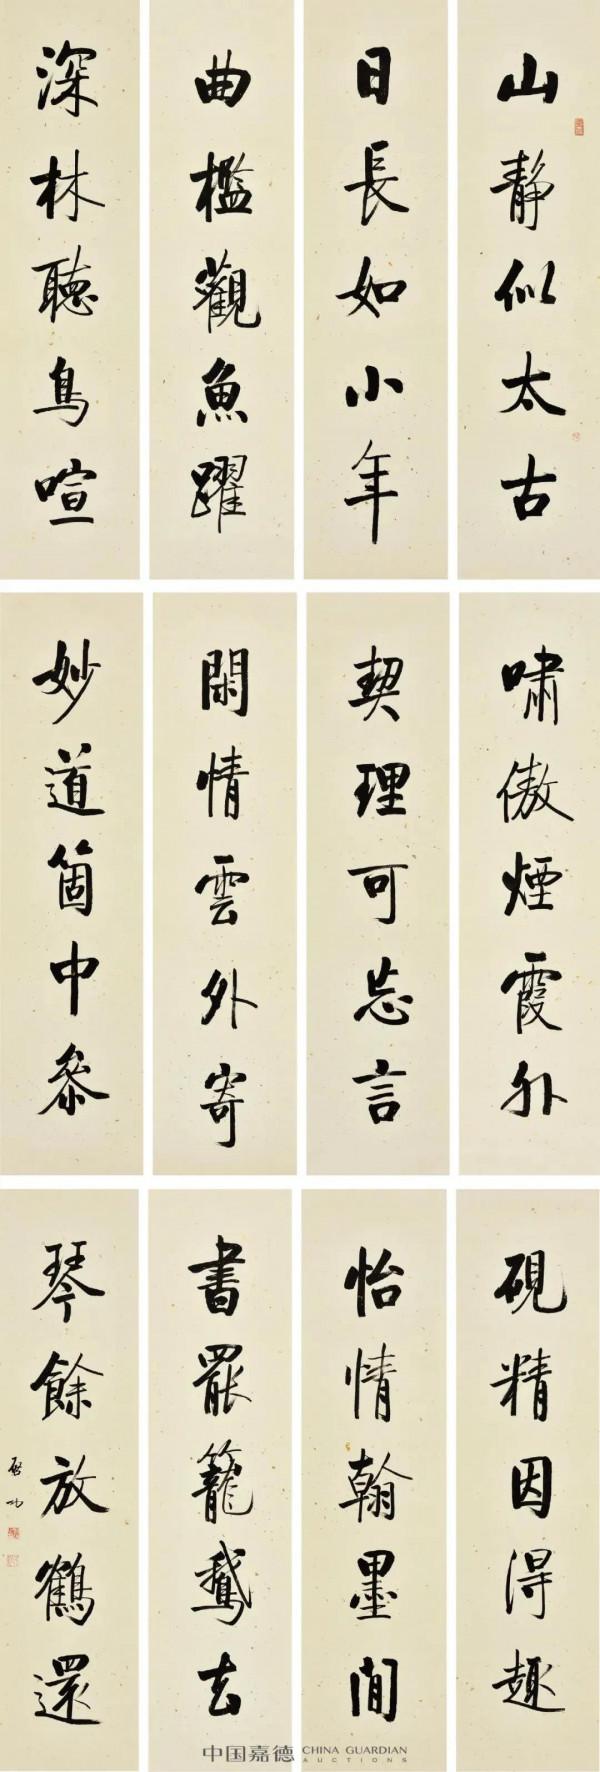 山靜似太古
日長如小年
曲檻觀魚躍
深林聽鳥喧
嘯傲煙霞外
契理可忘言
閑情雲外寄
妙道箇中參
硯精因得趣
怡情翰墨間
書罷籠鵝去
琴餘放鶴還
啟功
中国嘉德 CHINA GUARDIAN AUCTIONS